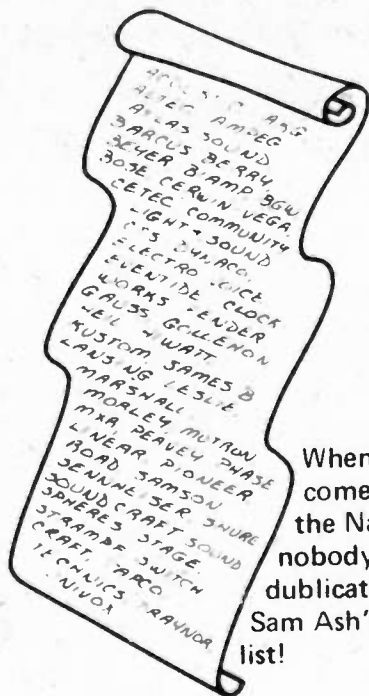 ACOUSTIC AKG
ALTEC AMPEG
ATLAS SOUND
BARCUS BERRY
BEYER BIAMP BGW
BOSE CERWIN VEGA
CETEC COMMUNITY
LIGHT & SOUND
CTS DYNACO.
ELECTRO VOICE
EVENTIDE CLOCK
WORKS FENDER
GAUSS GOLLEHON
HEIL HIWATT
KUSTOM JAMES B
LANSING LESLIE
MARSHALL
MORLEY MUTRON
MXR PEAVEY PHASE
LINEAR PIONEER
ROAD SAMSON
SENNHEISER SHURE
SOUNDCRAFT SOUND
SPHERES STAGE.
STRAMP SWITCH
CRAFT. TAPCO
TECHNICS TRAYNOR
When
come
the Na
nobody
dublicat
Sam Ash'
list!